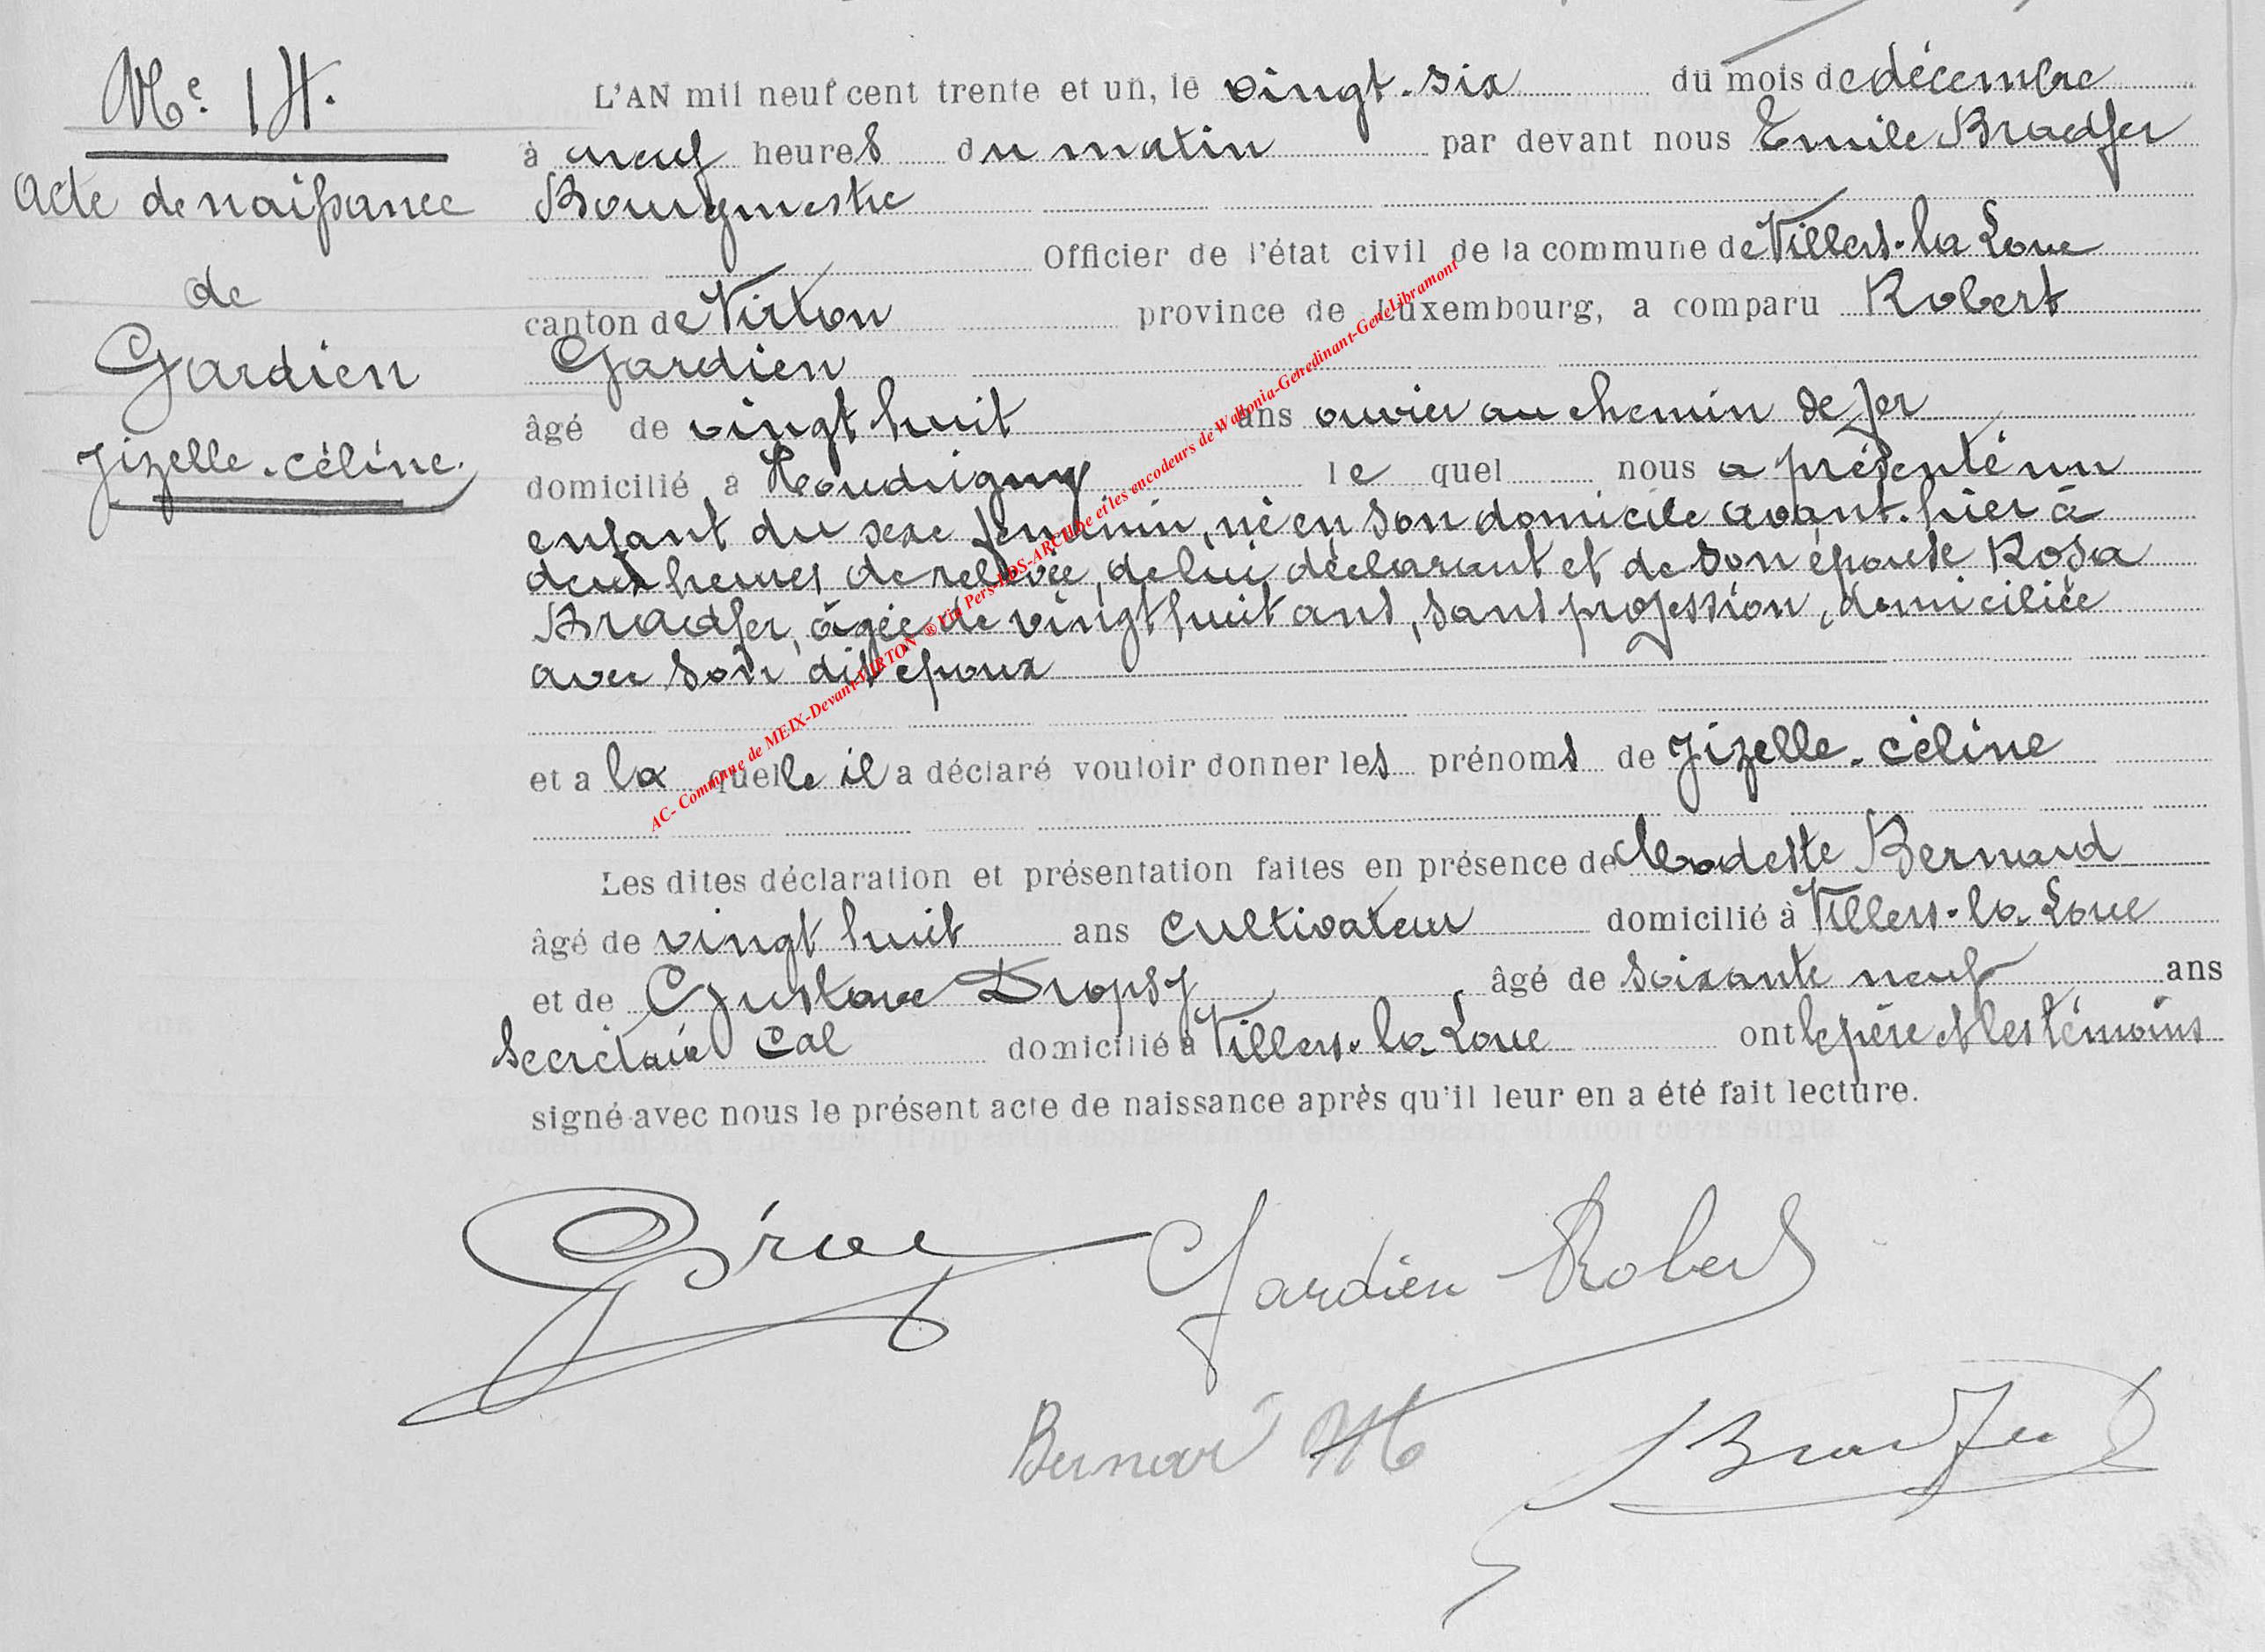 Nº. 14.
Acte de naissance
de
Gardien
Jizelle-céline.
L'AN mil neuf cent trente et un, le vingt-six du mois de décembre
à neuf heures du matin par devant nous Emile Bradfer
Bourgmestre
Officier de l'état civil de la commune de Villers-la Loue
canton de Virton province de Luxembourg, a comparu Robert
Gardien
âgé de vingt huit ans ouvrier au chemin de fer
domicilié à Houdrigny le quel nous a présenté un
enfant du sexe féminin, né en son domicile avant-hier à
deux heures de relevée, de lui déclarant et de son épouse Rosa
Bradfer, âgée de vingt huit ans, sans profession, domiciliée
avec son dit époux
et a la quelle il a déclaré vouloir donner les prénoms de Jizelle-céline
Les dites déclaration et présentation faites en présence de Modeste Bernard
âgé de vingt huit ans cultivateur domicilié à Villers-la-Loue
et de Gustave Dropsy âgé de soixante neuf ans
Secrétaire Cal domicilié à Villers-la-Loue ont le père et les témoins
signé avec nous le présent acte de naissance après qu'il leur en a été fait lecture.
Gardien Robert
Bernard M
Bradfer
AC- Commune de MEIX-Devant-VIRTON ® Via Pers-LDS-ARCHbe et les encodeurs de Wallonia-Genedinant-GeneLibramont